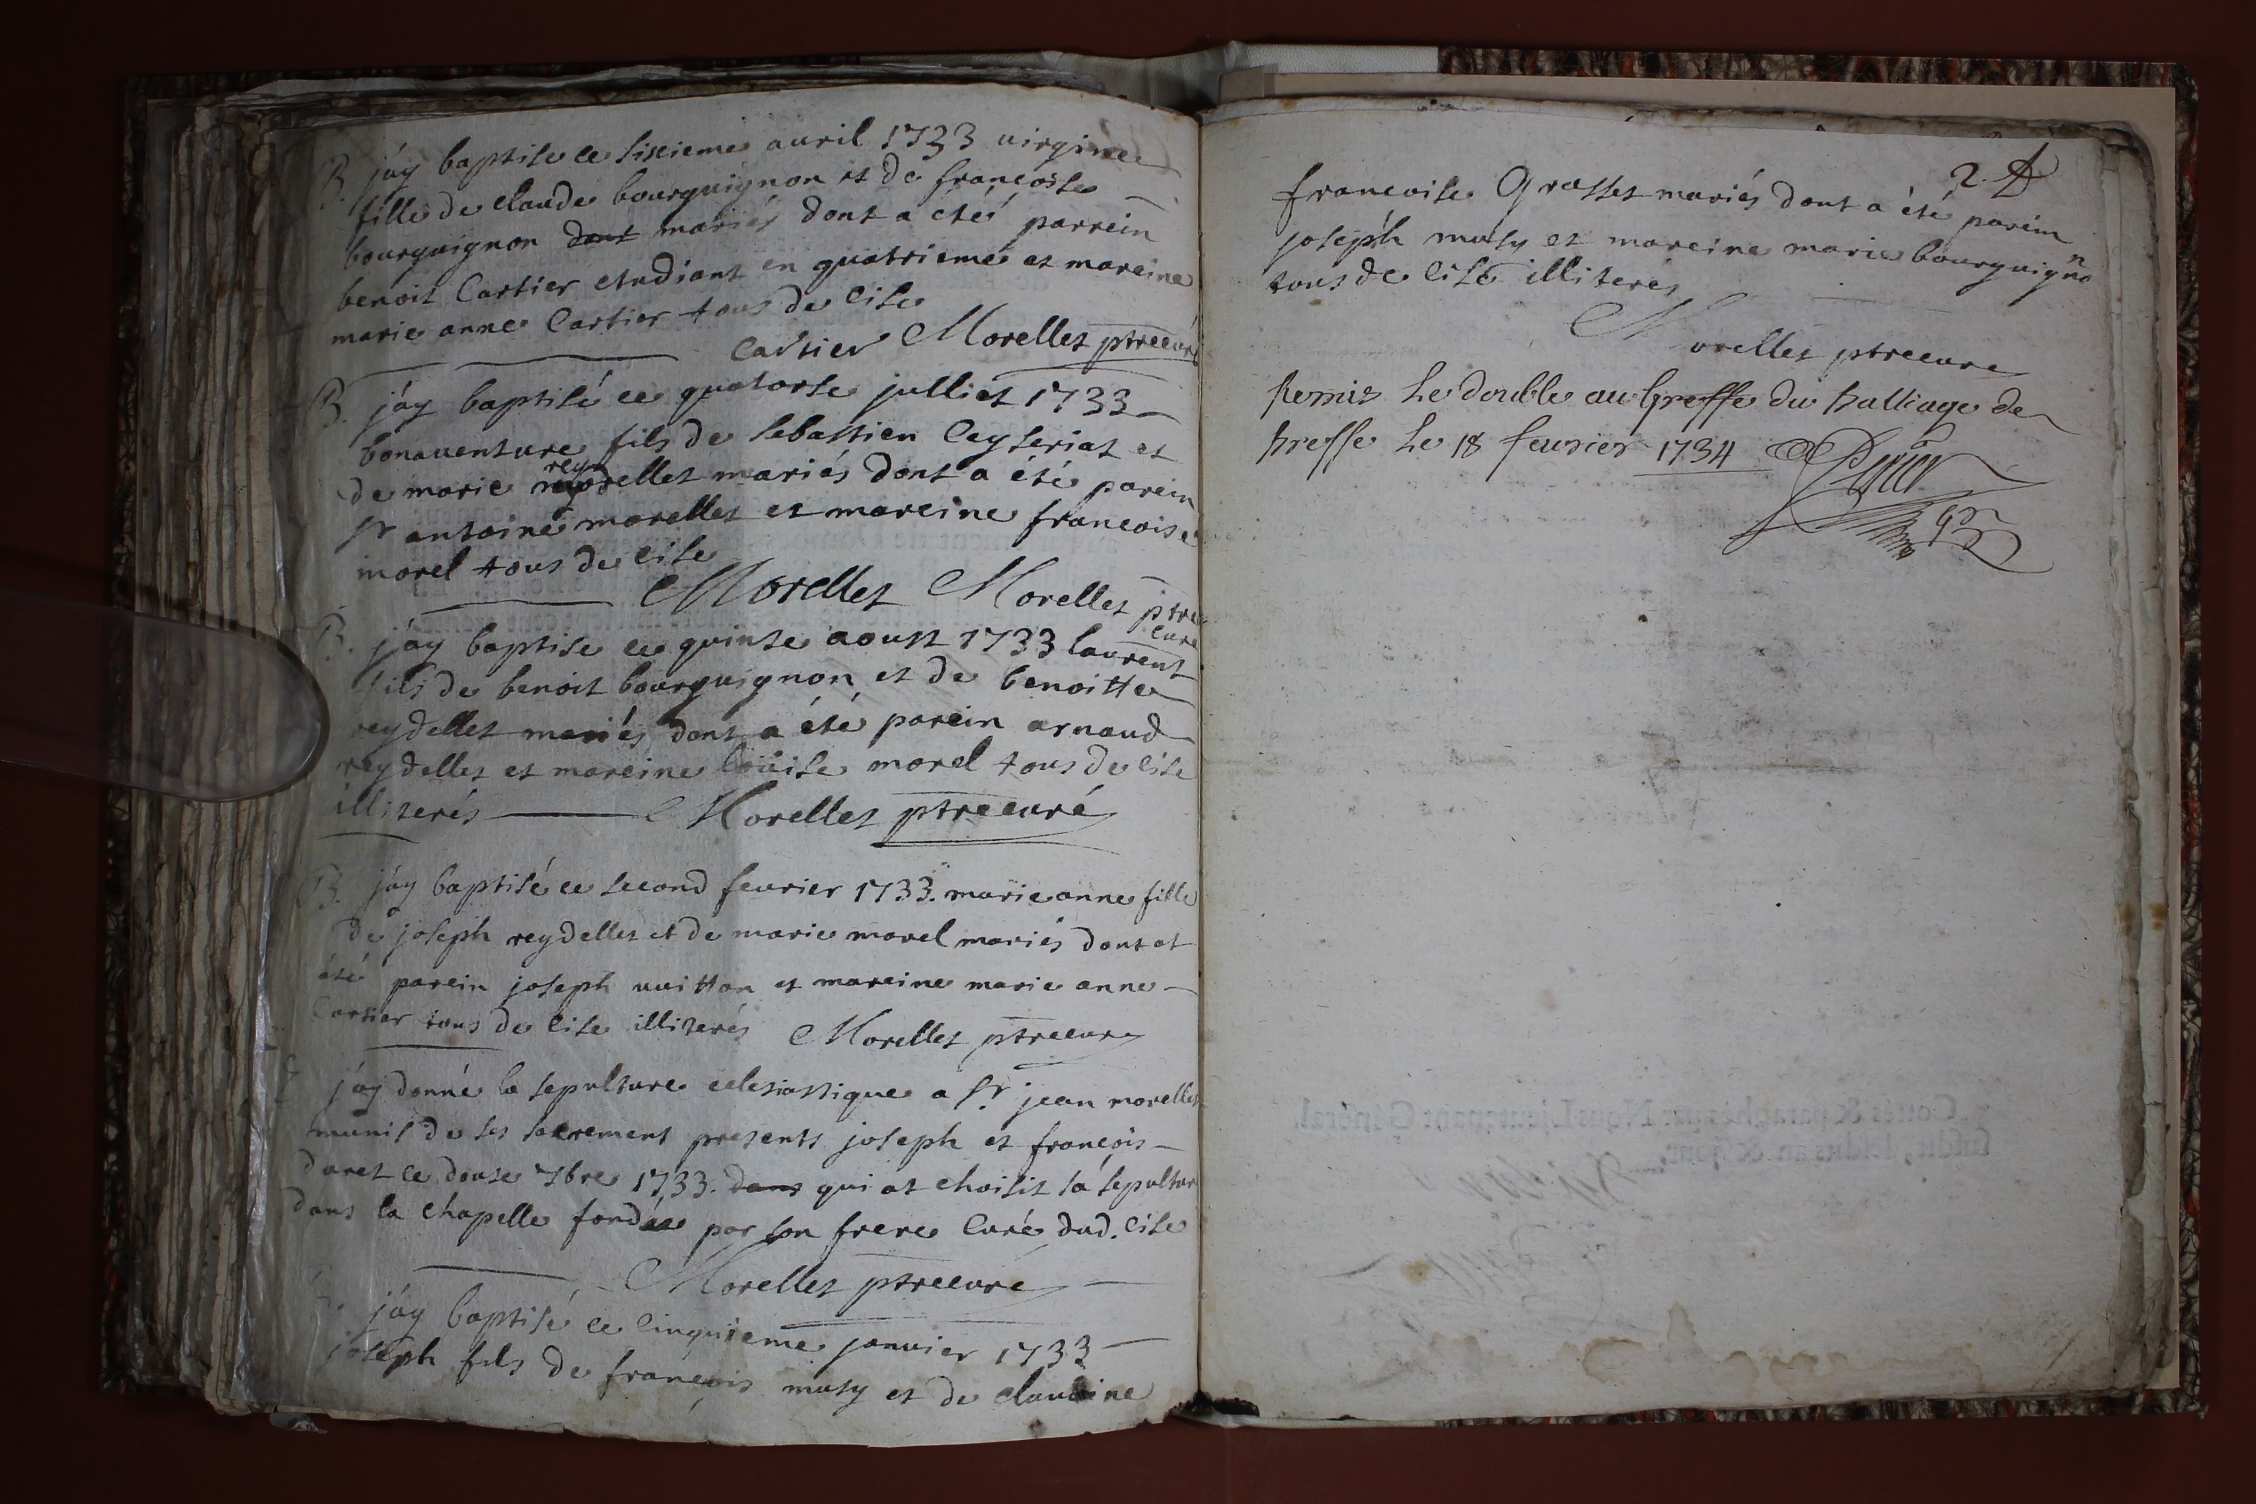 B. jáy baptise ce sixieme auril 1733 uirgine
fille de claude bourguignon et de francoise
bourguignon dont mariés dont a été parrein
benoit Cartier etudiant en quatrieme et mareine
marie anne Cartier tous de cise
Cartier Morellet ptrecuré
B. jáy baptisé ce quatorse julliet 1733
bonauenture fils de sebastien Ceyseriat et
de marie reydellet mariés dont a été parein
Sr antoine morellet et mareine francoise
morel tous de cise
Morellet Morellet ptre
curé
B. jáy baptise ce quinse aoust 1733 laurent
fils de benoit bourguignon et de benoitte
reydellet mariés dont a été parein arnaud
reydellet et mareine louise morel tous de cise
illiterés Morellet ptrecuré
B. jáy baptisé ce second feurier 1733. marie anne fille
de joseph reydellet et de marie morel mariés dont at
été parein joseph uuitton et mareine marie anne
Cartier tous de cise illiterés Morellet ptrecure
jáy donné la sepulture eclesiastique a Sr. jean morellet
munis de ses sacrement presents joseph et françois
duret ce douse 7bre 1733. dans qui at choisit sa sepultur
dans la chapelle fondée par son frere Curé dud. cise
Morellet ptrecuré
B. jáy baptisé ce cinquieme januier 1733
joseph fils de françois musy et de claudine
2.
francoise Grosset mariés dont a été parein
joseph musy et mareine marie bourguigno n
tous de cise illiterés
Morellet ptrecure
Remis Le double au Greffe du balliage de
bresse Le 18 feurier 1734
Cottés & paraphés par Nous Lieutenant Général